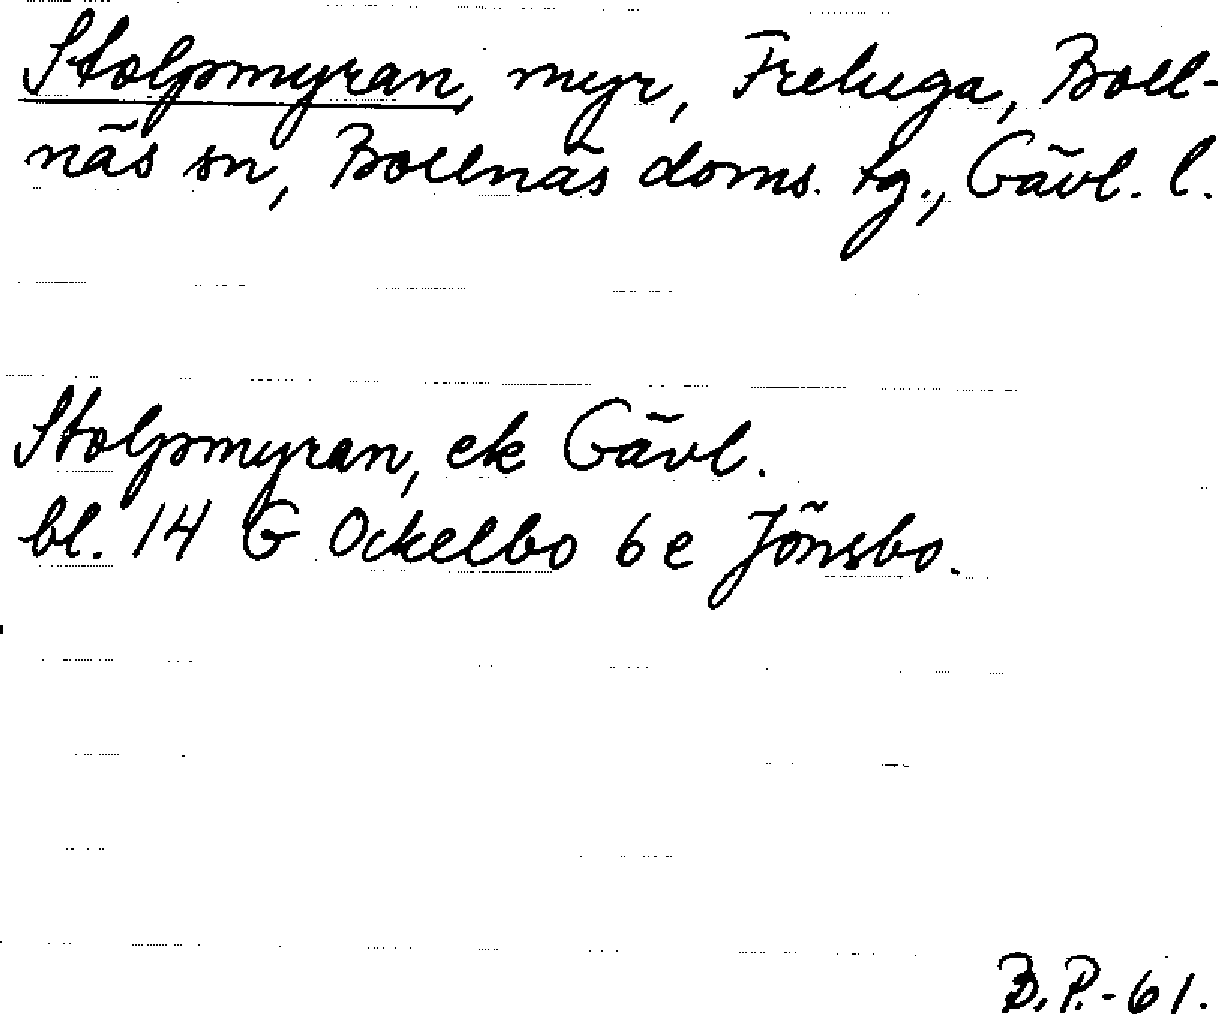 Stolpmyran, myr, Freluga, Boll-
näs sn, Bollnäs doms. tg., Gävl. l.
Stolpmyran, ek Gävl.
bl. 14 G Ockelbo 6 e Jönsbo.
B.P.-61.